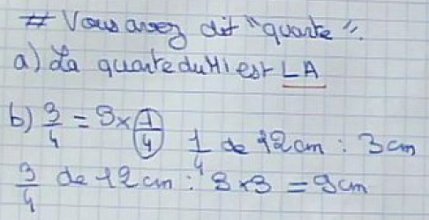 # Vous avez dit "quarte".
a) La quarte du Mi est LA
b) 3/4 = 3 × 1/4   1/4 de 12 cm : 3 cm
3/4 de 12 cm : 3 × 3 = 9 cm